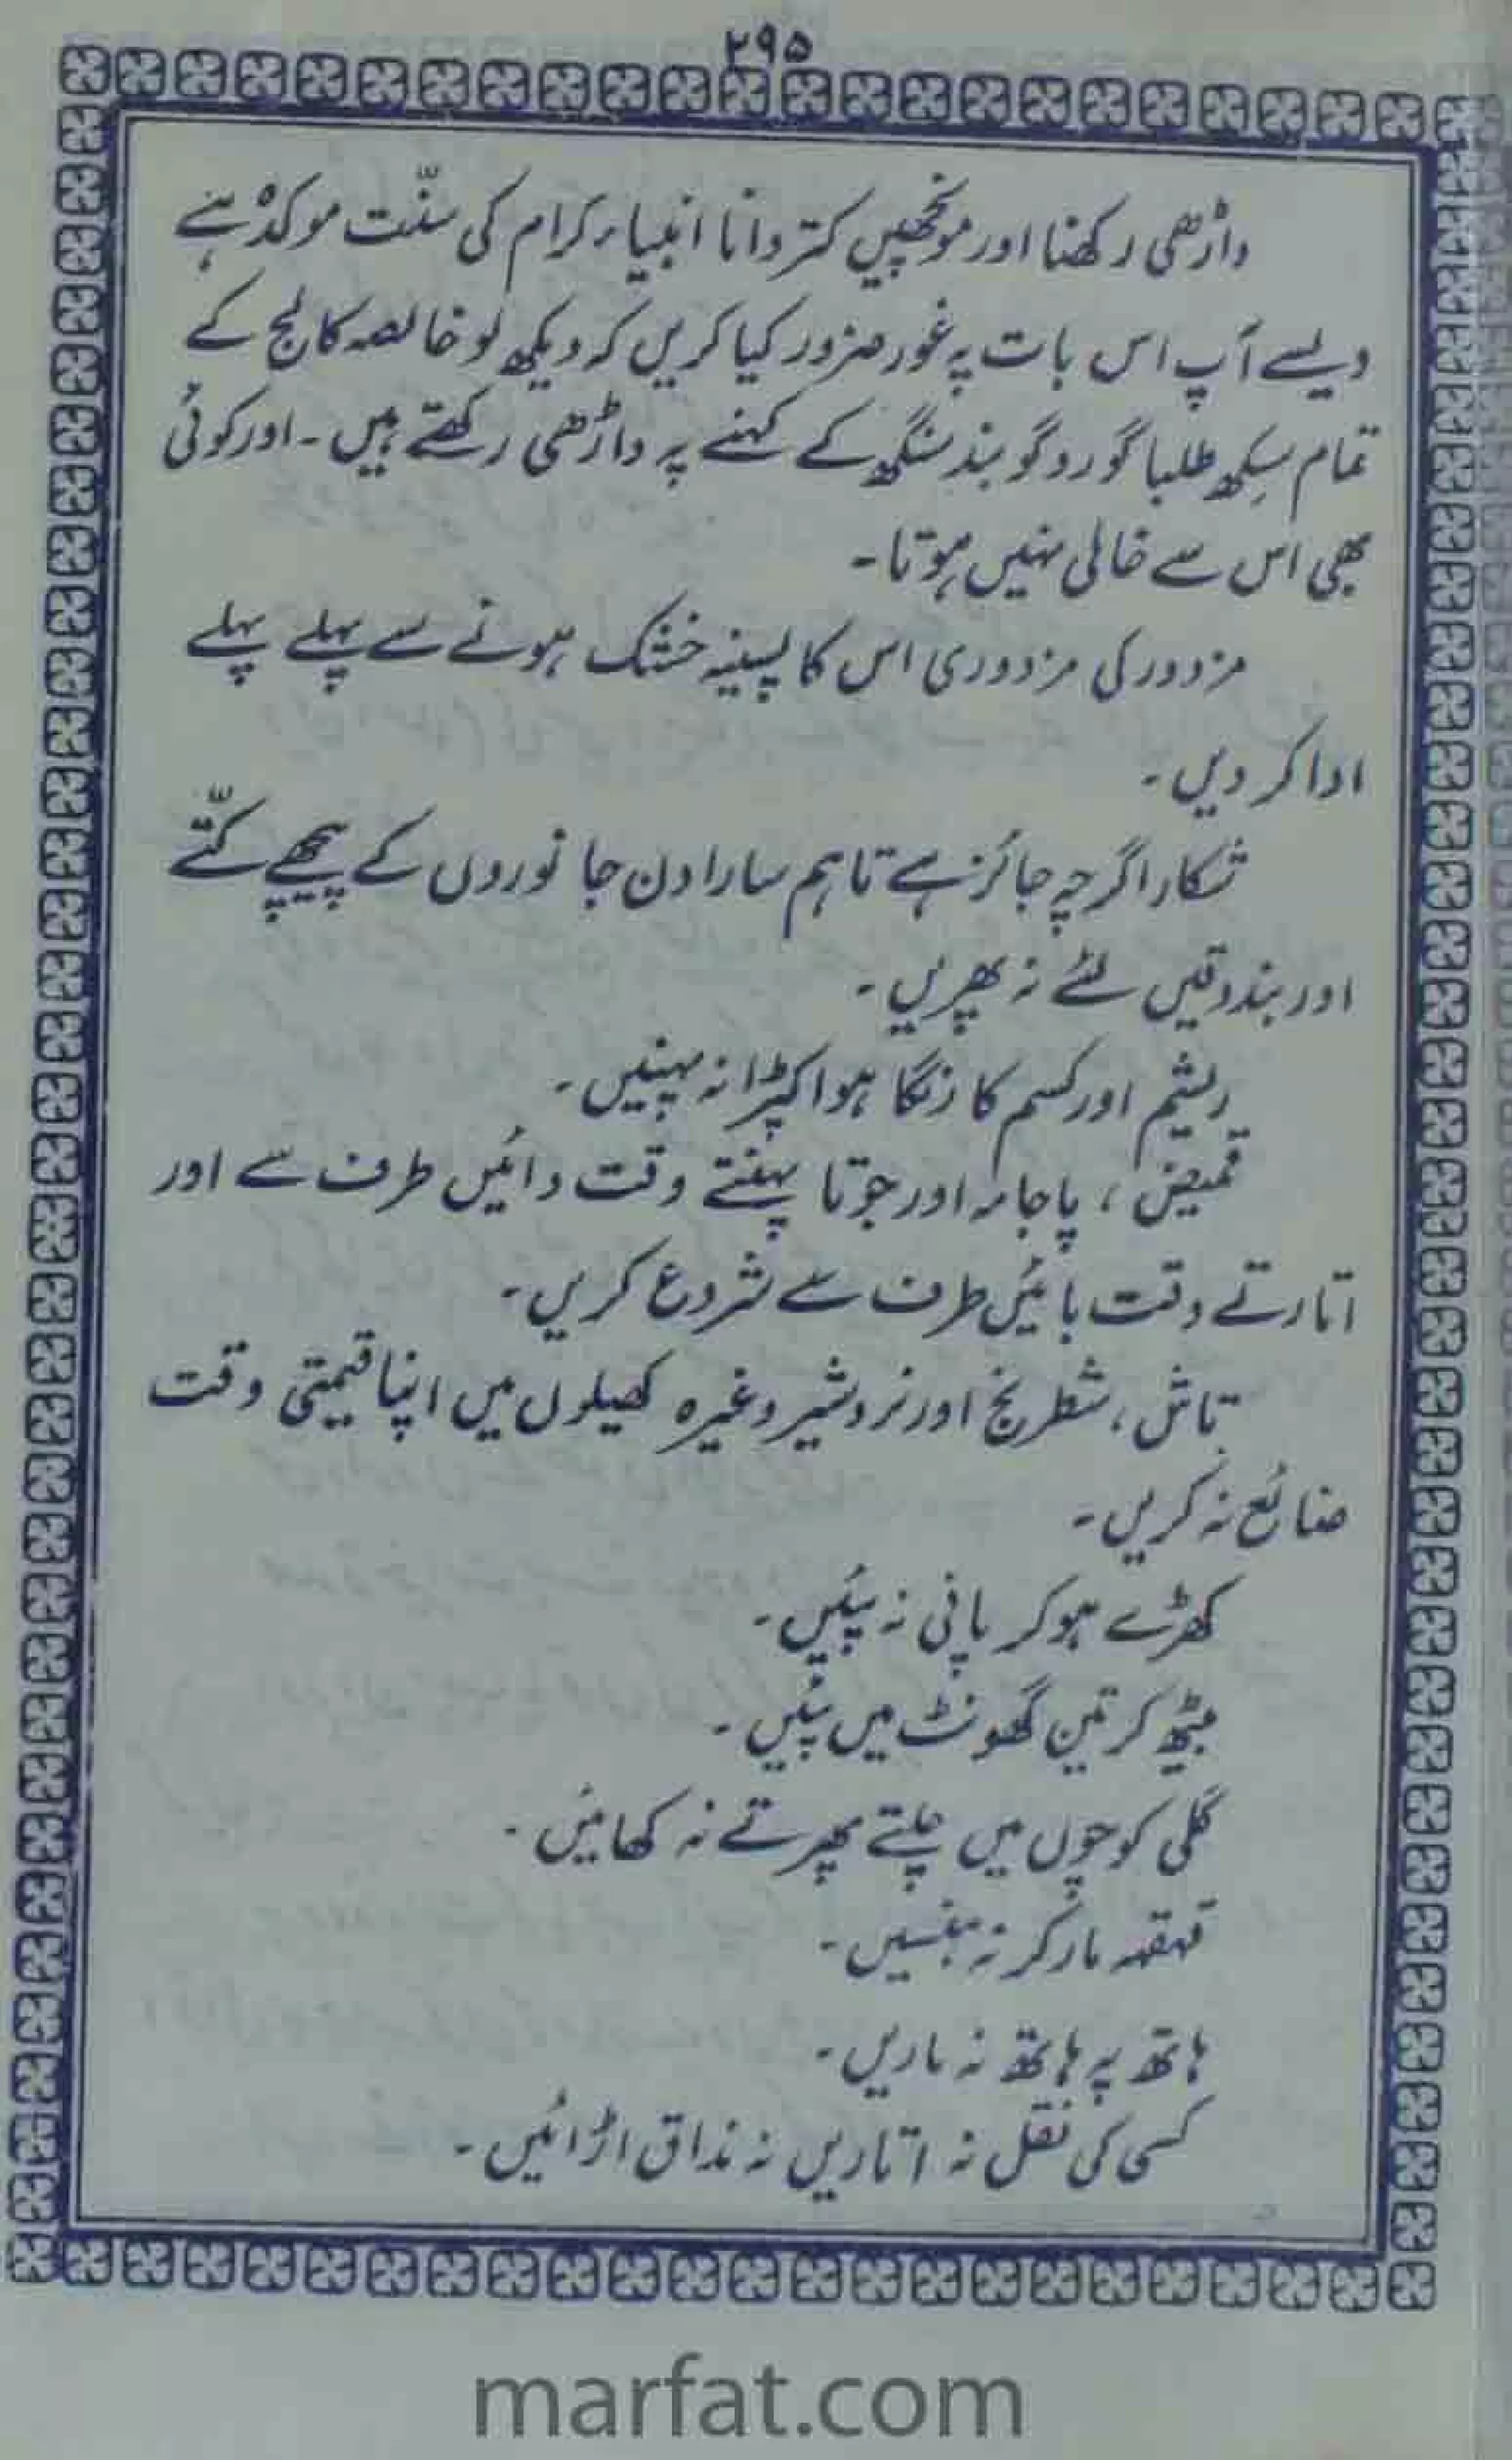 ۲۹۵
داڑھی رکھنا اور مونچھیں کتروانا انبیاء کرام کی سنّت موکدہ ہے
ویسے آپ اس بات پہ غور ضرور کیا کریں کہ دیکھ لو خالصہ کالج کے
تمام سکھ طلبا گورو گوبند سنگھ کے کہنے پہ داڑھی رکھتے ہیں۔ اور کوئی
بھی اس سے خالی نہیں ہوتا۔
مزدور کی مزدوری اس کا پسینہ خشک ہونے سے پہلے پہلے
ادا کر دیں۔
شکار اگرچہ جائز ہے تاہم سارا دن جانوروں کے پیچھے کتّے
اور بندوقیں لئے نہ پھریں۔
ریشم اور کسم کا رنگا ہوا کپڑا نہ پہنیں۔
قمیض، پاجامہ اور جوتا پہنتے وقت دائیں طرف سے اور
اتارتے وقت بائیں طرف سے شروع کریں۔
تاش، شطرنج اور نردشیر وغیرہ کھیلوں میں اپنا قیمتی وقت
ضائع نہ کریں۔
کھڑے ہو کر پانی نہ پئیں۔
بیٹھ کر تین گھونٹ میں پئیں۔
گلی کوچوں میں چلتے پھرتے نہ کھائیں۔
قہقہہ مار کر نہ ہنسیں۔
ہاتھ پہ ہاتھ نہ ماریں۔
کسی کی نقل نہ اتاریں نہ مذاق اڑائیں۔
marfat.com